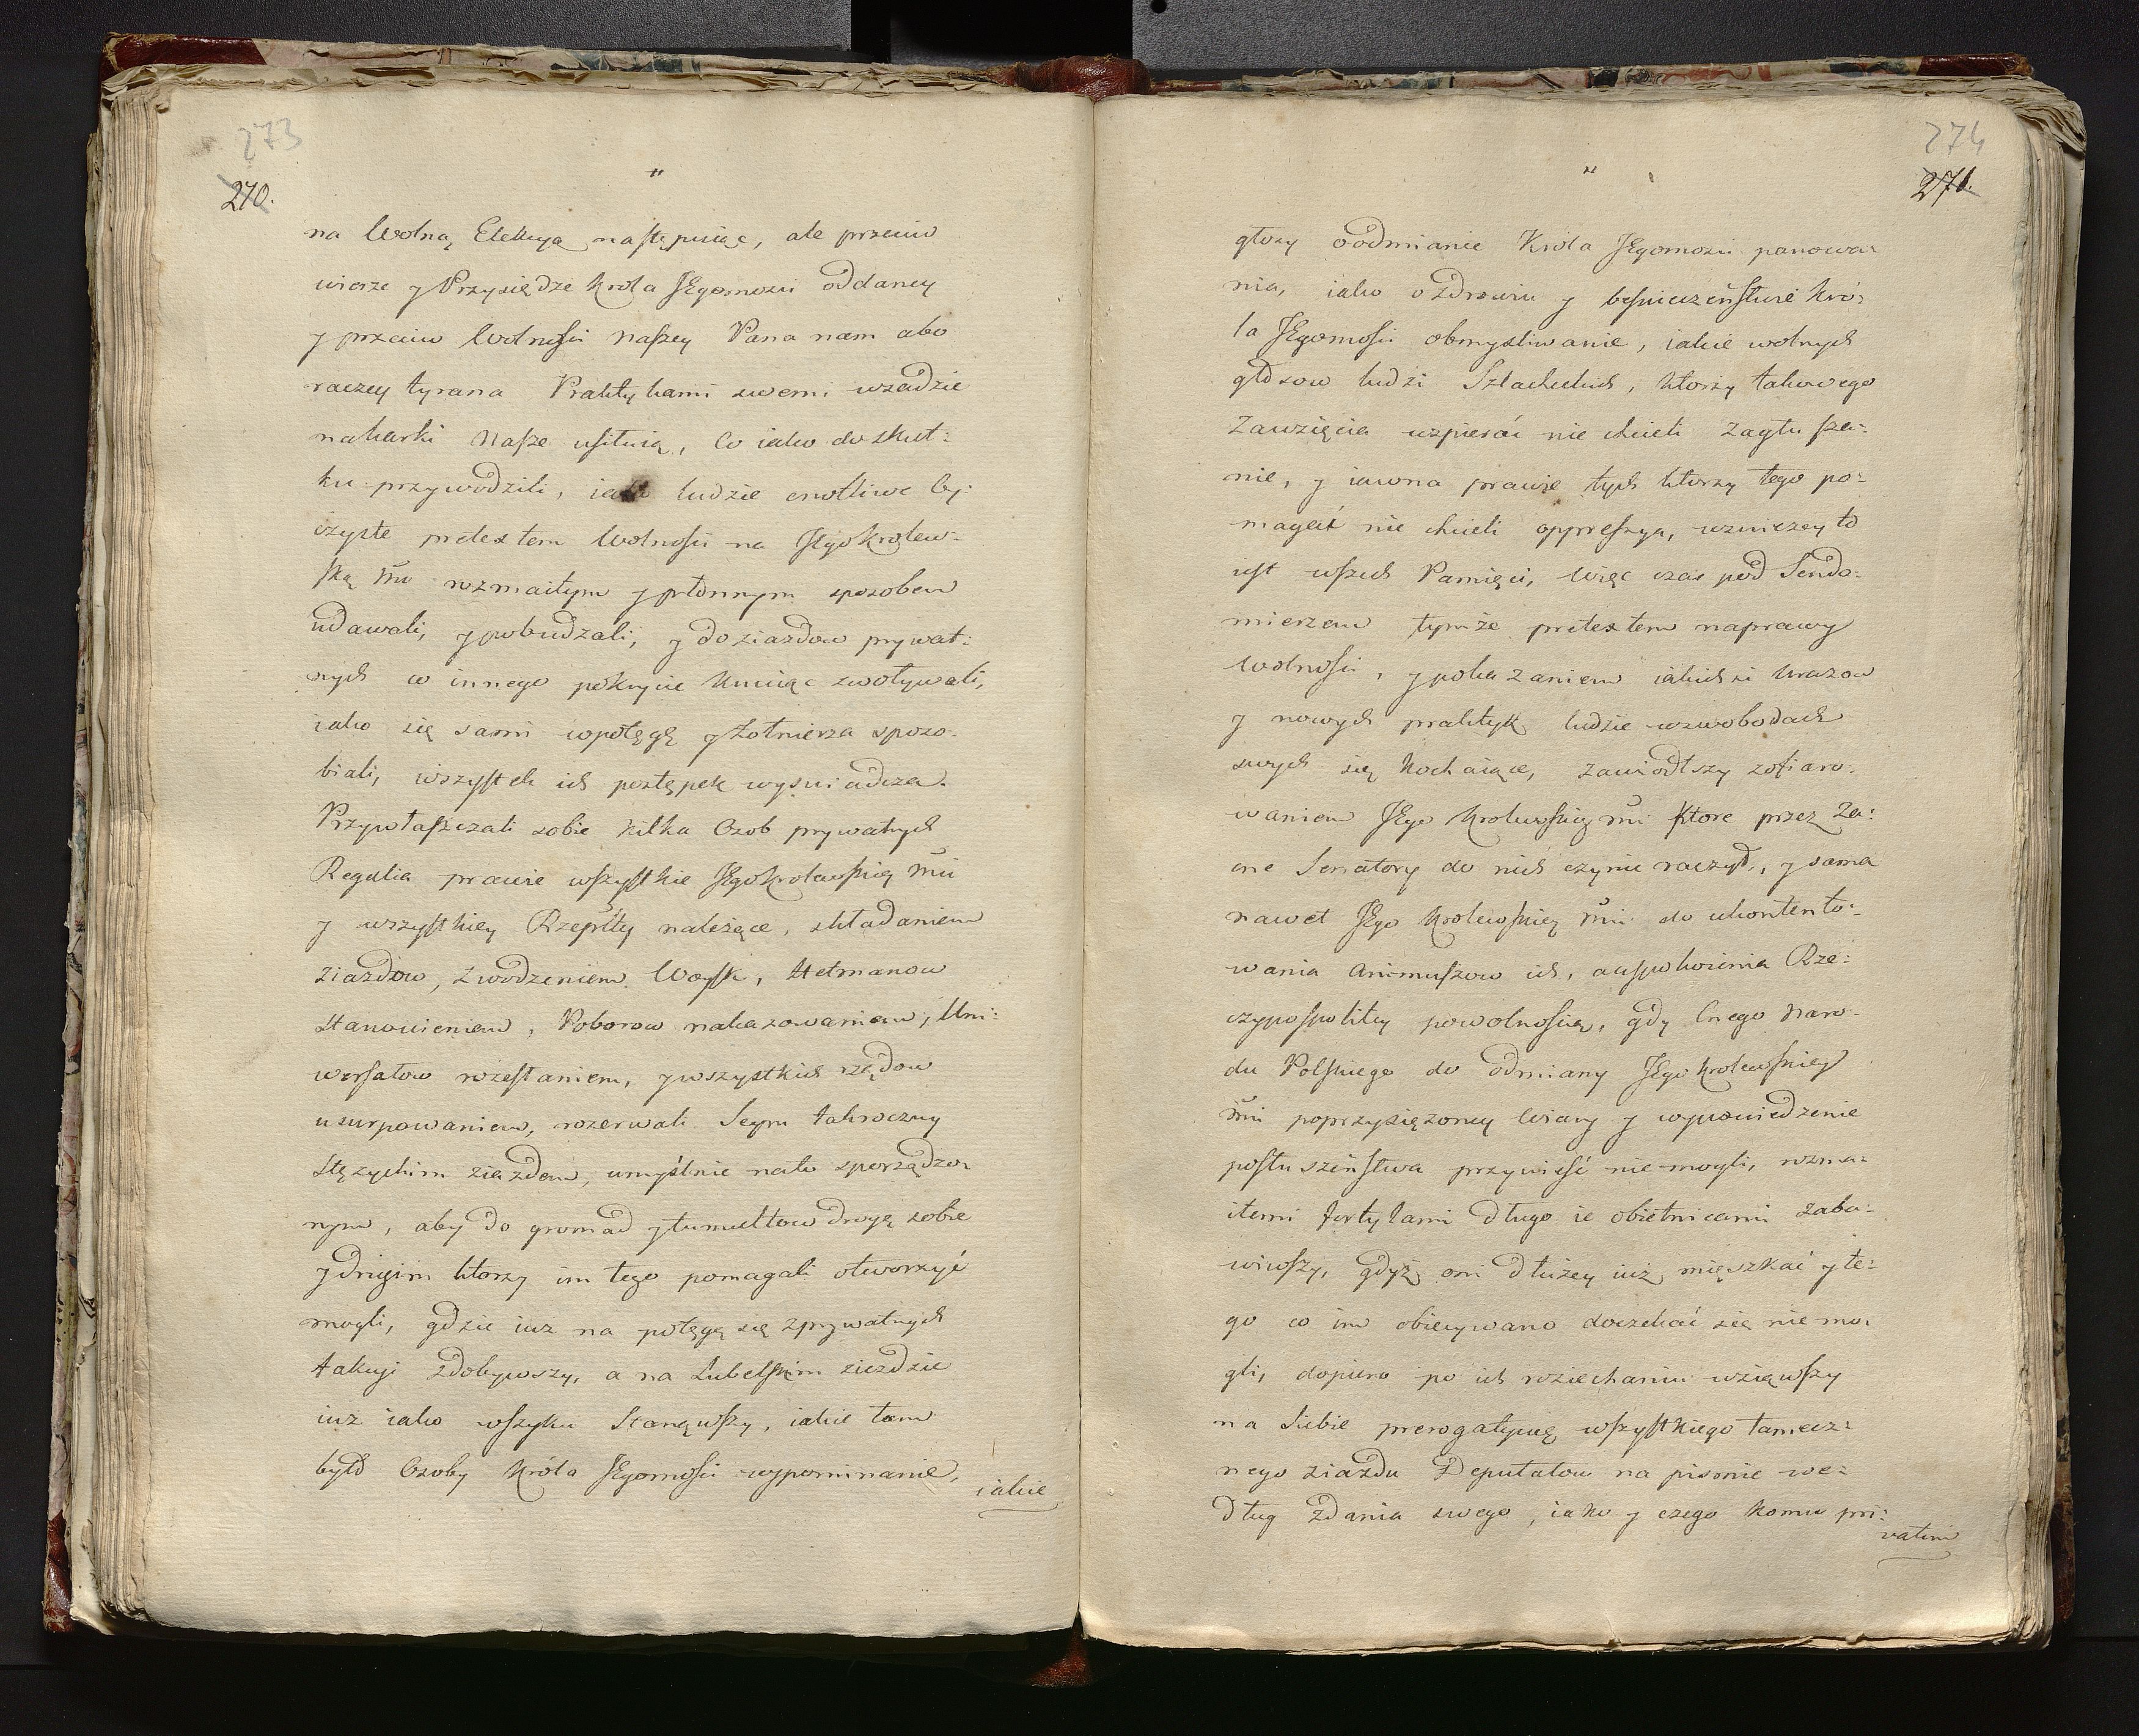 273
270.
"
na Wolną Elekcyą nastę puiąc, ale przeciw
wierze y Przysiędze Krola JEgomosci oddaney
y przeciw Wolnosci naszey Pana nam abo
raczey tyrana Praktykami swemi wsadzie
na karki nasze usiłuią, Co iako do skut:
ku przywodzili, iako ludzie cnotliwe by:
czyste pretextem Wolnosci na JEgo Krolew:
ską Mc rozmaitym y płonnym sposobem
udawali, y pobudzali, y do ziazdow prywat:
nych co innego pokrycie knuiąc zwoływali,
iako się sami w potęgę y Zołnierza sposo:
biali, wszystek ich postępek wyswiadcza.
Przywłaszczali sobie kilka Osob prywatnych
Regalia prawie wszystkie JEgo Krolewskiey Mci
y wszystkiey Rzeptey należące, składaniem
Ziazdow, Zwodzeniem Woysk, Hetmanow
stanowieniem, Poborow nakazowaniem, Uni:
wersałow rozesłaniem, y wszystkich rządow
usurpowaniem, rozerwali Seym takroczny
Stęzyckim ziazdem, umyślnie na to sporządzo:
nym, aby do gromad y tumultow drogę sobie
y drugim ktorzy im tego pomagali otworzyć
mogli, gdzie iuz na potęgę się z prywatnych
takuji zdobywszy, a na Lubelskim ziezdzie
iuz iako w szyku stanąwszy, iakie tam
było Osoby Króla JEgomosci wypominanie,
iakie
274
271.
"
głosy o odmianie Krola JEgomosci panowa:
nia, iako o zdrowiu y bespieczeństwie Kró:
la JEgomosci obmysliwanie, iakie wolnych
głosow ludzi Szlacheckich, ktorzy takowego
Zawzięcia wspierać nie chcieli Zagłusza:
nie, y iawna prawie tych ktorzy tego po:
magać nie chcieli oppressya, w swiezey to
iest wszech Pamięci, Więc czas pod Sendo:
mierzem tymże pretextem naprawy
Wolnosci, y pokazaniem iakichsi Urazow
y nowych praktyk ludzie w swobodach
swych się kochaiące, zawiodłszy z ofiaro:
waniem JEgo Krolewskiey Mci ktore przez Za:
cne Senatory do nich czynic raczył, y sama
nawet JEgo Krolewskiey Mci do ukontento:
wania Animuszow ich, a uspokoienia Rze:
czypospolitey powolnoscią, gdy Cnego Naro:
du Polskiego do odmiany JEgo Krolewskiey
Mci poprzysięzoney Wiary y wypowiedzenie
posłuszeństwa przywieść nie mogli, rozma:
itemi fortylami długo ie obietnicami zaba:
wiwszy, gdyż oni dłużey iuż mięszkać y te:
go co im obiecywano doczekać się nie mo:
gli, dopiero po ich roziechaniu wziąwszy
na Siebie prerogatywę wszystkiego tamecz:
nego ziazdu Deputatow na pismie we:
dług Zdania swego, iako y czego komu pri:
vatim